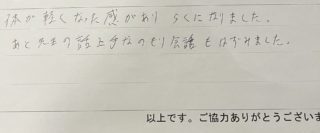 体が軽くなった感があり らくになりました。
あと先生の話上手なのもり会話もはずみました。
以上です。ご協力ありがとうございま